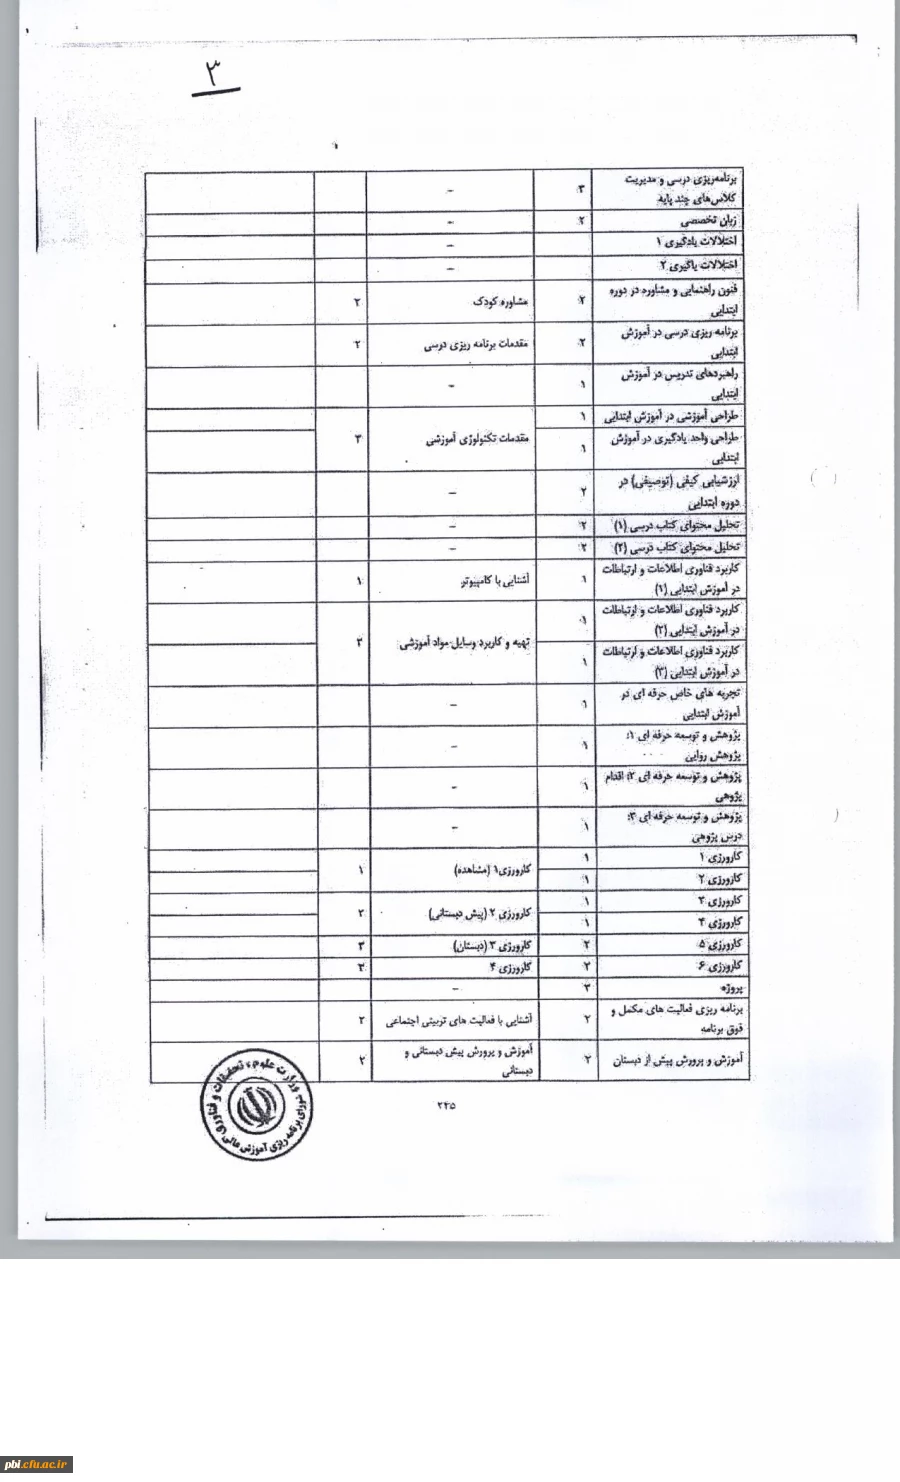 ۳
برنامه‌ریزی درسی و مدیریت
کلاس‌های چند پایه
۳
–
زبان تخصصی
۲
–
اختلالات یادگیری ۱
–
اختلالات یاگیری ۲
–
فنون راهنمایی و مشاوره در دوره
ابتدایی
۲
مشاوره کودک
۲
برنامه ریزی درسی در آموزش
ابتدایی
۲
مقدمات برنامه ریزی درسی
۲
راهبردهای تدریس در آموزش
ابتدایی
۱
–
طراحی آموزشی در آموزش ابتدایی
۱
مقدمات تکنولوژی آموزشی
۳
طراحی واحد یادگیری در آموزش
ابتدایی
۱
ارزشیابی کیفی (توصیفی) در
دوره ابتدایی
۲
–
تحلیل محتوای کتاب درسی (۱)
۲
–
تحلیل محتوای کتاب درسی (۲)
۲
–
کاربرد فناوری اطلاعات و ارتباطات
در آموزش ابتدایی (۱)
۱
آشنایی با کامپیوتر
۱
کاربرد فناوری اطلاعات و ارتباطات
در آموزش ابتدایی (۲)
۱
تهیه و کاربرد وسایل مواد آموزشی
کاربرد فناوری اطلاعات و ارتباطات
در آموزش ابتدایی (۳)
۱
تجربه های خاص حرفه ای در
آموزش ابتدایی
۱
–
پژوهش و توسعه حرفه ای ۱:
پژوهش روایی
۱
–
پژوهش و توسعه حرفه ای ۲: اقدام
پژوهی
۱
–
پژوهش و توسعه حرفه ای ۳:
درس پژوهی
۱
–
کارورزی ۱
۱
کارورزی۱ (مشاهده)
۱
کارورزی ۲
۱
کارورزی
۱
کارورزی ۲ (پیش دبستانی)
۲
کارورزی ۴
۱
کارورزی ۵
۲
کارورزی ۳ (دبستان)
کارورزی ۶
کارورزی ۴
پروژه
–
برنامه ریزی فعالیت های مکمل و
فوق برنامه
۲
آشنایی با فعالیت های تربیتی اجتماعی
۲
آموزش و پرورش پیش از دبستان
۲
آموزش و پرورش پیش دبستانی و
دبستانی
۲
۲۴۵
وزارت علوم، تحقیقات و فناوری
شورای برنامه ریزی آموزش عالی
pbi.cfu.ac.ir